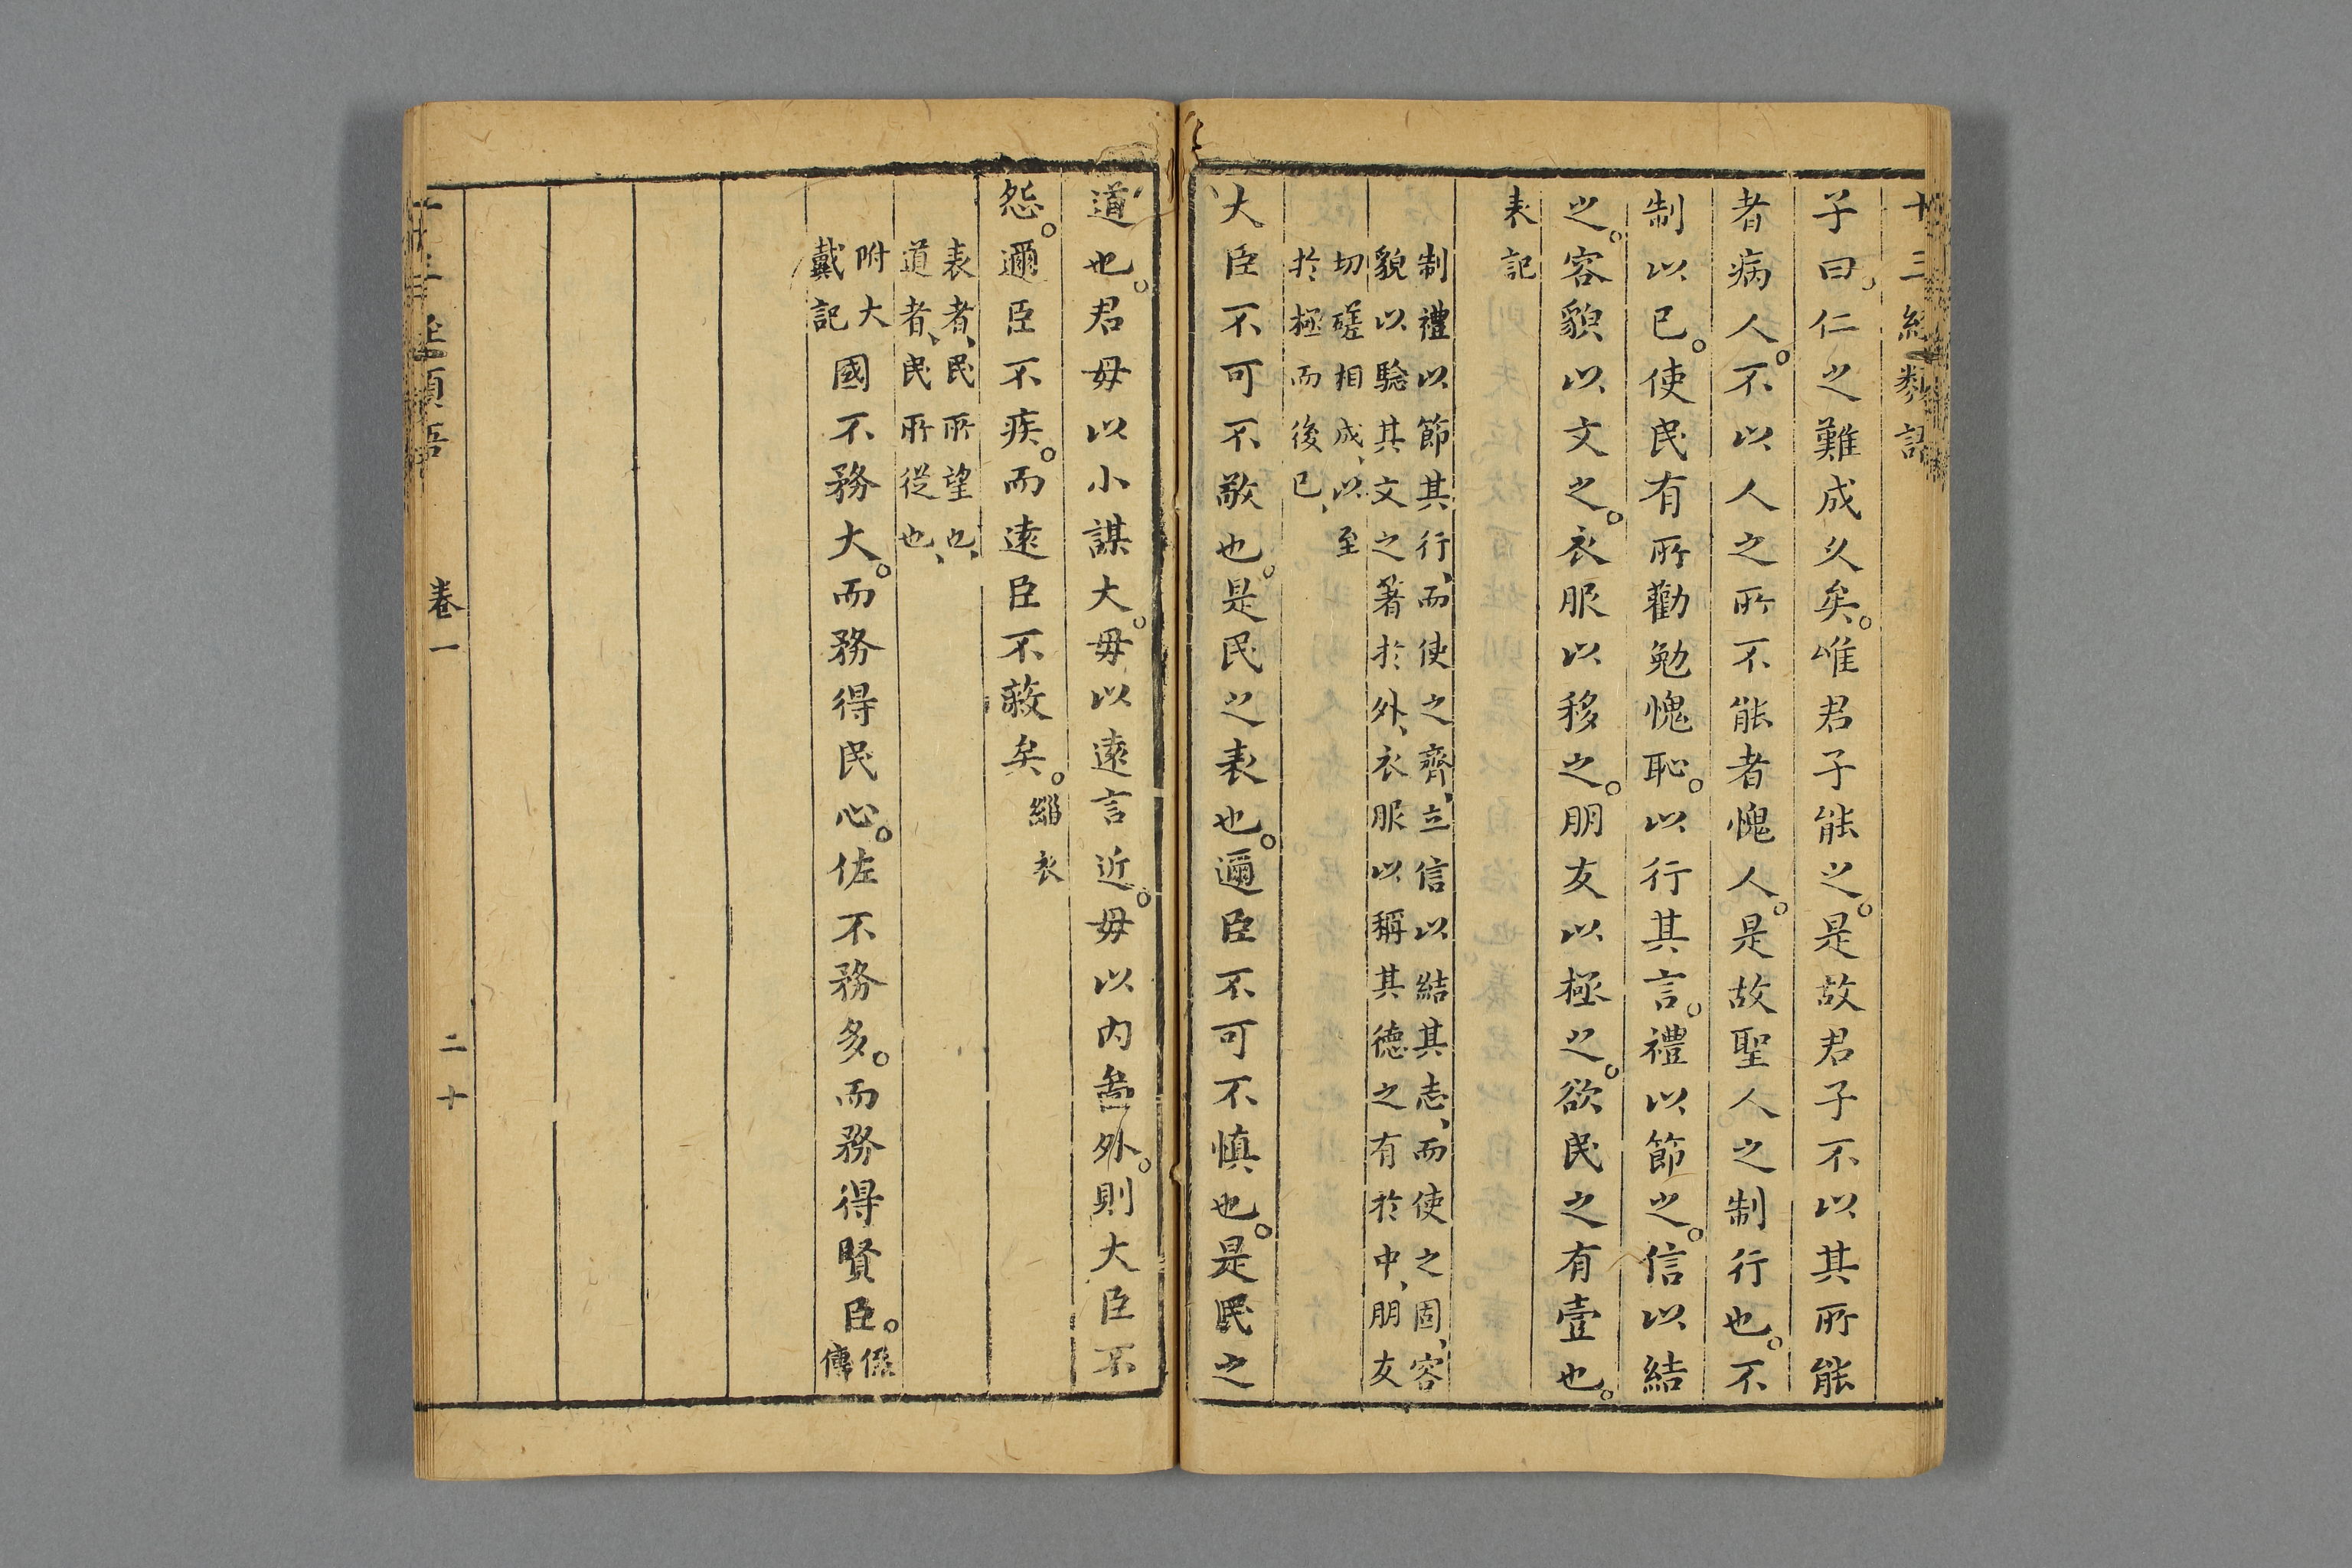 十三經類語
子曰。仁之難成久矣。唯君子能之。是故君子不以其所能
者病人。不以人之所不能者愧人。是故聖人之制行也。不
制以已。使民有所勸勉愧恥。以行其言。禮以節之。信以結
之。容貌以文之。衣服以移之。朋友以極之。欲民之有壹也。
表記
制禮以節其行、而使之齊、立信以結其志、而使之固、容
貌以騐其文之著於外、衣服以稱其德之有於中、朋友
切磋相成、以至
於極而後已、
大臣不可不敬也。是民之表也。邇臣不可不慎也。是民之
道也。君毋以小謀大。毋以遠言近。毋以內啚外。則大臣不
怨。邇臣不疾。而遠臣不蔽矣。緇衣
表者、民所望也、
道者、民所從也、
附大
戴記
國不務大。而務得民心。佐不務多。而務得賢臣。
係
傳
十三經類語 卷一 二十